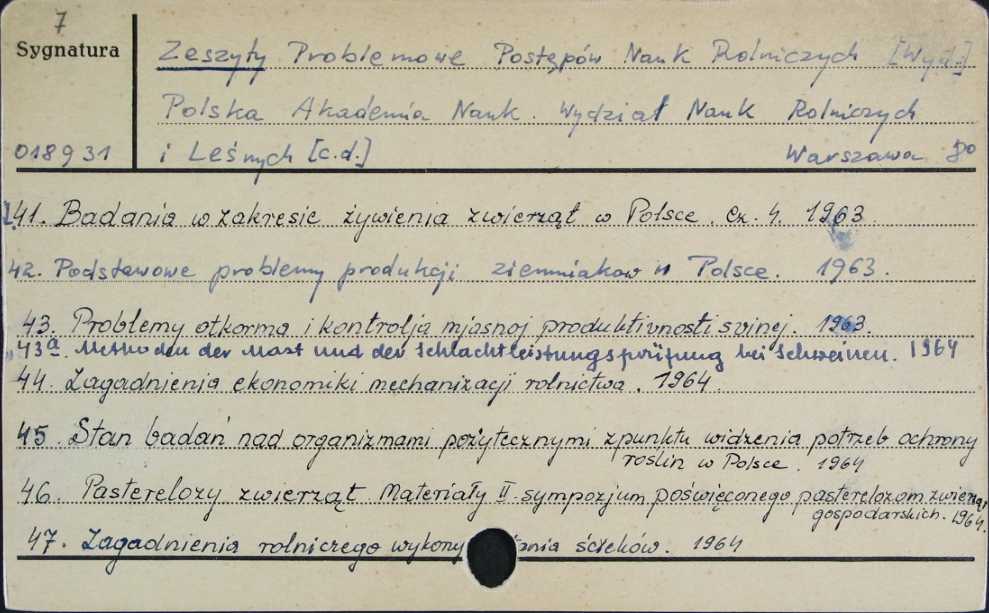 7
Sygnatura
Zeszyty Problemowe Postępów Nauk Rolniczych [Wyd.]
Polska Akademia Nauk. Wydział Nauk Rolniczych
018931 i Leśnych [c.d.] Warszawa 8º
41. Badania w zakresie żywienia zwierząt w Polsce. Cz. 4. 1963.
42. Podstawowe problemy produkcji ziemniaków w Polsce. 1963.
43. Problemy otkorma i kontrolja mjasnoj produktivnosti svinej. 1963.
43a. Methoden der Mast und der Schlachtleistungsprüfung bei Schweinen. 1964
44. Zagadnienia ekonomiki mechanizacji rolnictwa. 1964.
45. Stan badań nad organizmami pożytecznymi z punktu widzenia potrzeb ochrony
roślin w Polsce. 1964
46. Pasterelozy zwierząt Materiały II-sympozjum poświęconego pasterelozom zwierząt
gospodarskich. 1964.
47. Zagadnienia rolniczego ścieków. 1964